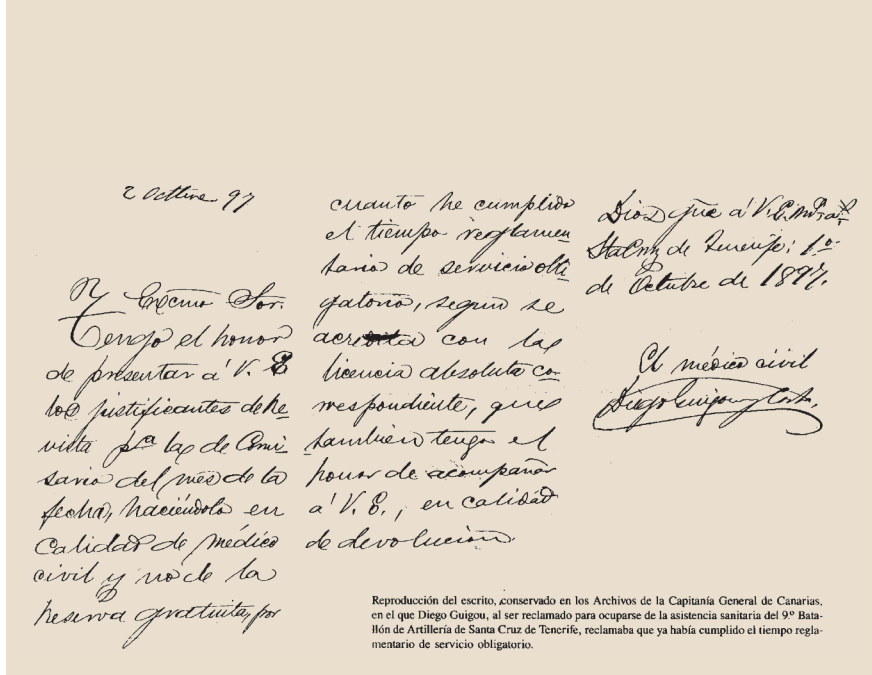 2 Octbre 97
Excmo Sor.
Tengo el honor
de presentar á V. E
los justificantes de Re
vista pª la de Comi
sario del mes de la
fecha, haciéndolo en
calidad de médico
civil y no de la
Reserva gratuita, por
cuanto he cumplido
el tiempo reglamen
tario de servicio obli
gatorio, segun se
acredita con la
licencia absoluta co-
rrespondiente, que
tambien tengo el
honor de acompañar
á V. E., en calidad
de devolucion.
Dios gue á V. E. ms. as.
Sta Cruz de Tenerife: 1º
de Octubre de 1897.
El médico civil
Diego Guigou y Costa.
Reproducción del escrito, conservado en los Archivos de la Capitanía General de Canarias,
en el que Diego Guigou, al ser reclamado para ocuparse de la asistencia sanitaria del 9.º Bata-
llón de Artillería de Santa Cruz de Tenerife, reclamaba que ya había cumplido el tiempo regla-
mentario de servicio obligatorio.